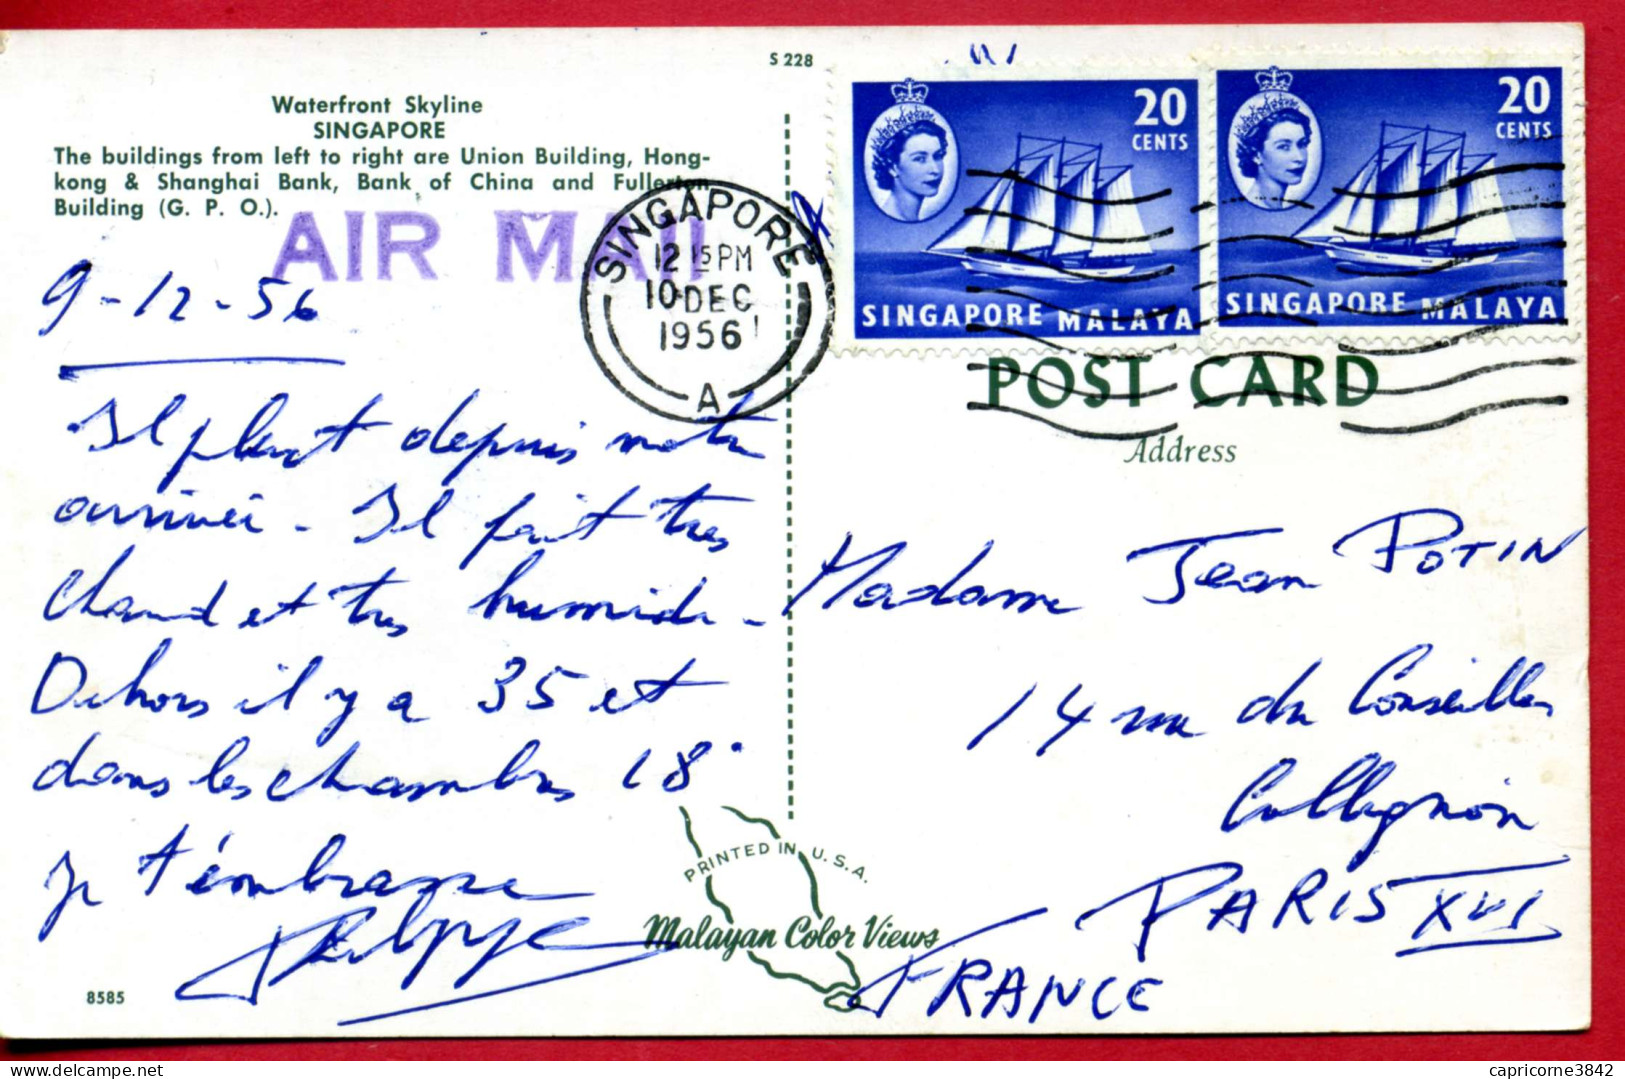 S 228
Waterfront Skyline
SINGAPORE
The buildings from left to right are Union Building, Hong-
kong & Shanghai Bank, Bank of China and Fullerton
Building (G. P. O.).
AIR MAIL
SINGAPORE
12 15 PM
10 DEC
1956
A
20
CENTS
SINGAPORE MALAYA
20
CENTS
SINGAPORE MALAYA
POST CARD
Address
9-12-56
Il pleut depuis notre
arrivée - Il fait très
chaud et très humide -
Dehors il y a 35 et
dans les chambres 18°
Je t'embrasse
Philippe
Madame Jean POTIN
14 rue du Conseiller
Collignon
PARIS XVI
FRANCE
PRINTED IN U.S.A.
Malayan Color Views
8585
capricorne3842